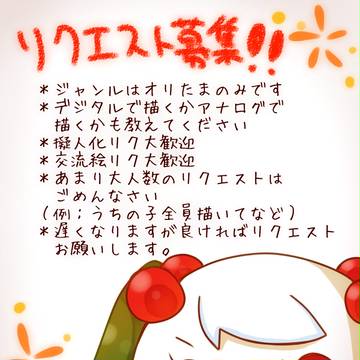 リクエスト募集!!
*ジャンルはオリたまのみです
*デジタルで描くかアナログで
描くかも教えてください
*擬人化リク大歓迎
*交流絵リク大歓迎
*あまり大人数のリクエストは
ごめんなさい
(例;うちの子全員描いてなど)
*遅くなりますが良ければリクエスト
お願いします。